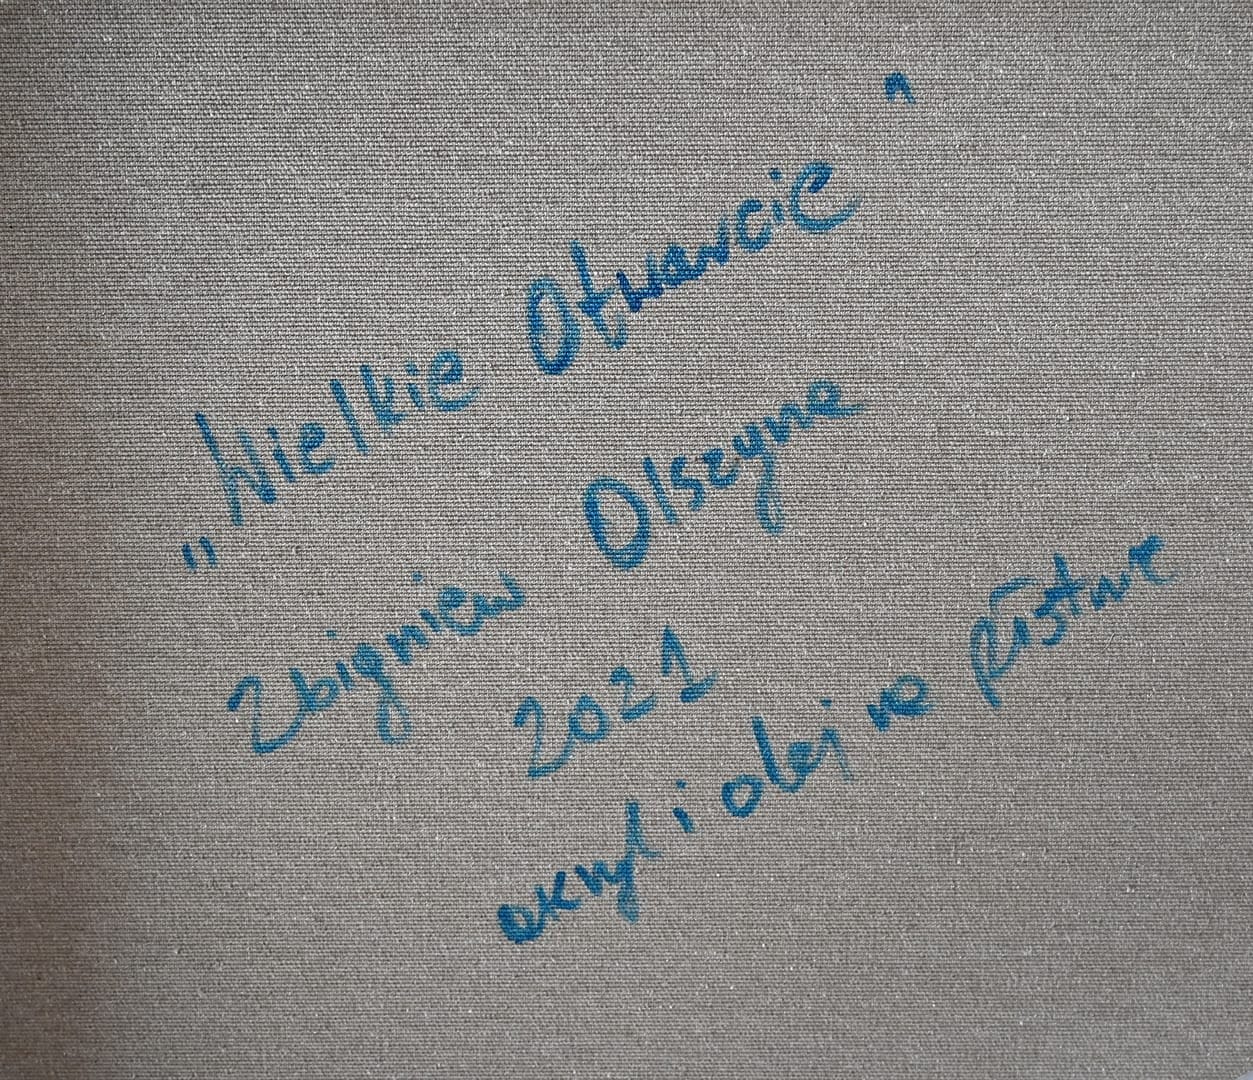 „Wielkie Otwarcie"
Zbigniew Olszyna
2021
akryl i olej na płótnie